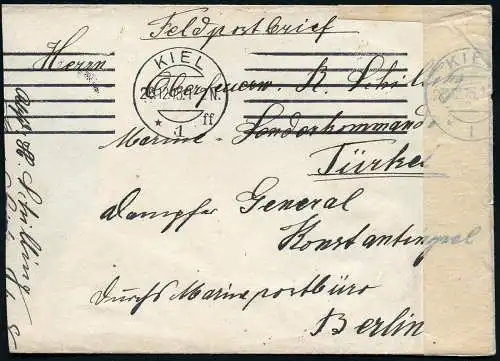 Feldpostbrief
Herrn
KIEL
* 1 ff
Oberfeuerw. R. Schill
Marine-Sonderkommando
Türkei
Dampfer General
Konstantinopel
durch Marinepostbüro
Berlin
KIEL
* 1
R. Schilling